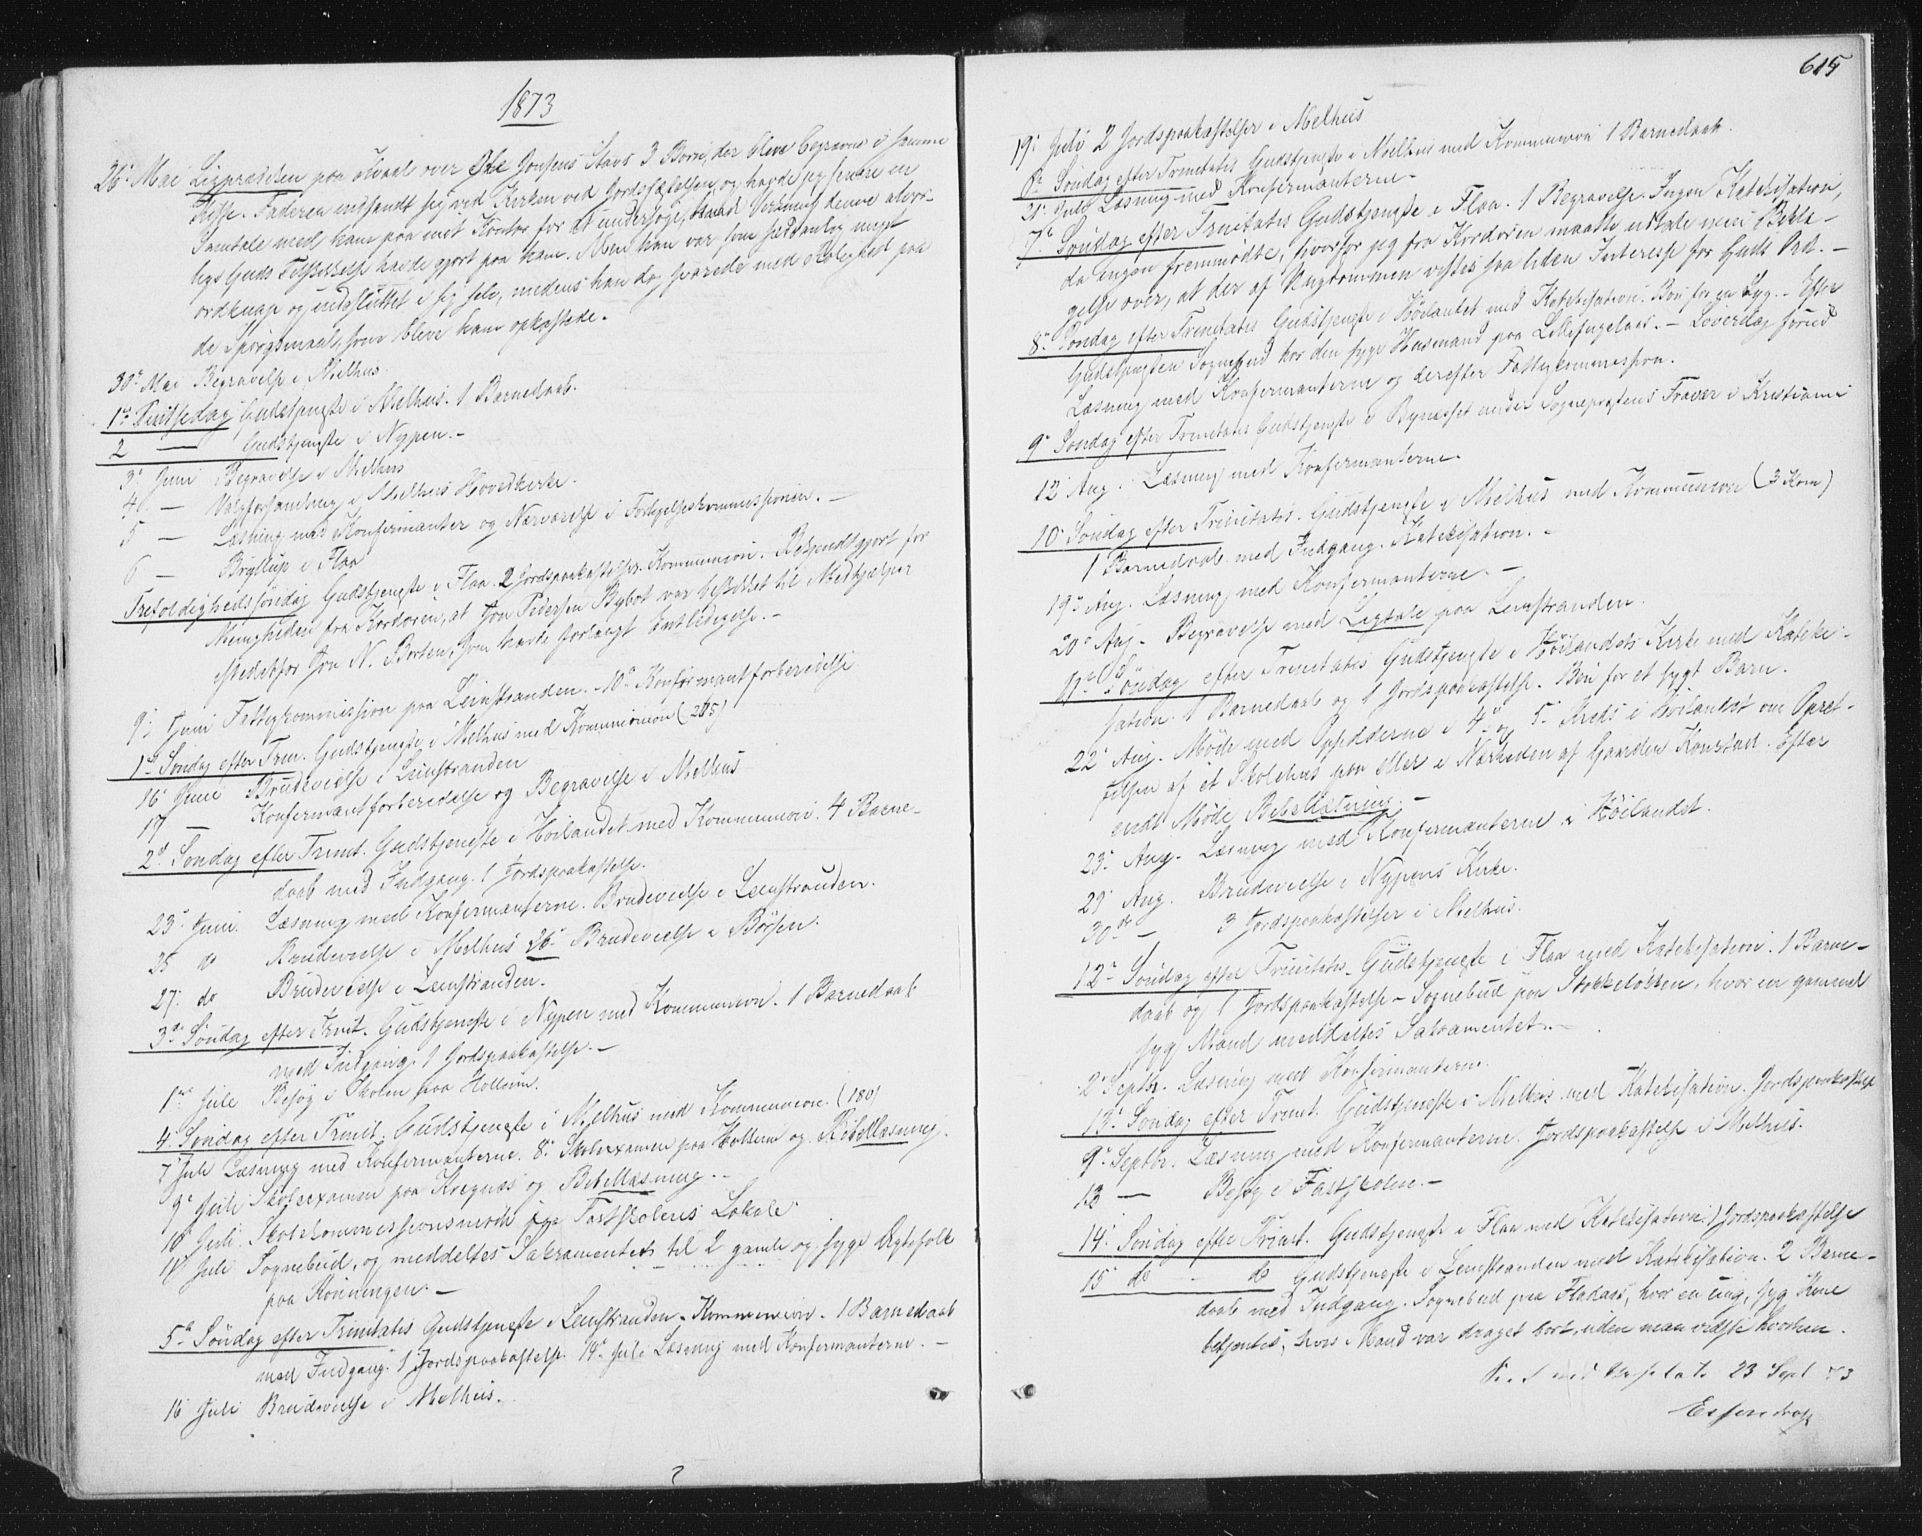 1873
26de Mai Ligprædiken paa Hvaal over Ole Jonsens Stavs 3 Børn, der bleve begravne i samme
Kiste. Faderen indfandt sig ved Kirken ved Jordfæstelsen, og havde jeg senere en
Samtale med ham paa mit Kontor for at undersøge, hvad Virkning denne alvor-
lige Guds Tilskikkelse havde gjort paa ham. Men han var som sædvanlig meget
ordknap og indsluttet i sig selv, medens han dog svarede med Rolighed paa
de Spørgsmaal, som bleve ham opkastede.
30te Mai Begravelse i Melhus.
1ste Pintsedag Gudstjeneste i Melhus. 1 Barnedaab.
2 — Gudstjeneste i Nypen. —
3die Juni Begravelse i Melhus
4 — Valgforsamling i Melhus Hovedkirke.
5 — Læsning med Konfirmanter og Nærværelse i Forligelseskommissionen. —
6 — Bryllup i Flaa
Trefoldighedssøndag Gudstjeneste i Flaa. 2 Jordspaakastelser. Kommunion. Bekjendtgjort for
Menigheden fra Kordøren, at Jon Pedersen Bybot var beskikket til Medhjælper
istedetfor Jon N. Borten, som havde forlangt Entledigelse. —
9de Juni Fattigkommission paa Leinstranden. – 10de Konfirmantforberedelse
1ste Søndag efter Trin. Gudstjeneste i Melhus med Kommunion (205)
16 Juni Brudevielse i Leinstranden
17 — Konfirmantforberedelse og Begravelse i Melhus
2d Søndag efter Trinit. Gudstjeneste i Høilandet med Kommunion. 4 Barne-
daab med Indgang. 1 Jordspaakastelse.
23de Juni. Læsning med Konfirmanterne. Brudevielse i Leinstranden.
25 do Brudevielse i Melhus 26de Brudevielse i Børsen.
27. do Brudevielse i Leinstranden.
3die Søndag efter Trinit. Gudstjeneste i Nypen med Kommunion. 1 Barnedaab
med Indgang. 1 Jordspaakastelse. —
1ste Juli Besøg i Skolen paa Hollum.
4. Søndag efter Trinit. Gudstjeneste i Melhus med Kommunion. (180)
7 Juli Læsning med Konfirmanterne. 8de Skoleexamen paa Hollum og Bibellæsning.
9de Juli Skoleexamen paa Kregnæs og Bibellæsning. –
10 Juli. Skolekommissionsmøde paa Fastskolens Lokale
11 Juli Sognebud, og meddeltes Sakramentet til 2 gamle og syge Ægtefolk
paa Rønningen. —
5te Søndag efter Trinitatis Gudstjeneste i Leinstranden. Kommunion. 1 Barnedaab
med Indgang. 1 Jordspaakastelse. 14de Juli Læsning med Konfirmanterne. —
16 Juli Brudevielse i Melhus.
615
19de Juli 2 Jordspaakastelser i Melhus
6te Søndag efter Trinitatis Gudstjeneste i Melhus med Kommunion 1 Barnedaab.
21de Juli Læsning med Konfirmanterne.
7de Søndag efter Trinitatis Gudstjeneste i Flaa. 1 Begravelse. Ingen Katekisation,
da ingen fremmødte, hvorfor jeg fra Kordøren maatte udtale min Bekla-
gelse over, at der af Ungdommen vistes saa liden Interesse for Guds Ord. —
8de Søndag efter Trinitatis Gudstjeneste i Høilandet med Katekisation. Bøn for en Syg. – Efter
Gudstjenesten Sognebud hos den syge Husmand paa . – Løverdag forud
Læsning med Konfirmanterne og derefter Fattigkommission.
9de Søndag efter Trinitatis Gudstjeneste i Bynesset under Sognepræstens Fravær i Kristiania
12 Aug. Læsning med Konfirmanterne.
10de Søndag efter Trinitatis. Gudstjeneste i Melhus med Kommunion (3 Kom)
1 Barnedaab med Indgang. Katekisation. –
19de Aug. Læsning med Konfirmanterne. —
20de Aug. Begravelse med Ligtale paa Leinstranden.
11te Søndag efter Trinitatis Gudstjeneste i Høilandets Kirke med Kateki-
sation. 1 Barnedaab og 1 Jordspaakastelse. Bøn for et sygt Barn.
22 Aug. Møde med Opsidderne i 4de og 5te Kreds i Høilandet om Opret-
telsen af et Skolehus paa eller i Nærheden af Gaarden Konstad. Efter
endt Møde Bibellæsning. —
23de Aug. Læsning med Konfirmanterne i Høilandet.
29 Aug. Brudevielse i Nypens Kirke.
30te — 3 Jordspaakastelser i Melhus.
12te Søndag efter Trinitatis. Gudstjeneste i Flaa med Katekisation. 1 Barne-
daab og 1 Jordspaakastelse – Sognebud paa Stokkeløkken, hvor en gammel
syg Mand meddeltes Sakramentet. —
2 Septbr. Læsning med Konfirmanterne.
13de Søndag efter Trinit. Gudstjeneste i Melhus med Katekisation. Jordspaakastelse
9de Septbr. Læsning med Konfirmanterne. Jordspaakastelse i Melhus.
13 — Besøg i Fastskolen. —
14. Søndag efter Trinit. Gudstjeneste i Flaa med Katekisation. 1 Jordspaakastelse
15 do do Gudstjeneste i Leinstranden med Katekisation. 2 Barne-
daab med Indgang. Sognebud paa Fladaas, hvor en ung, syg Kone
betjentes, hvis Mand var draget bort, uden man vidste hvorhen.
23 Sept 73
Essendrop